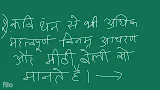 कवि धन से भी अधिक
महत्वपूर्ण विनम्र आचरण
और मीठी बोली को
मानते हैं। →
filo